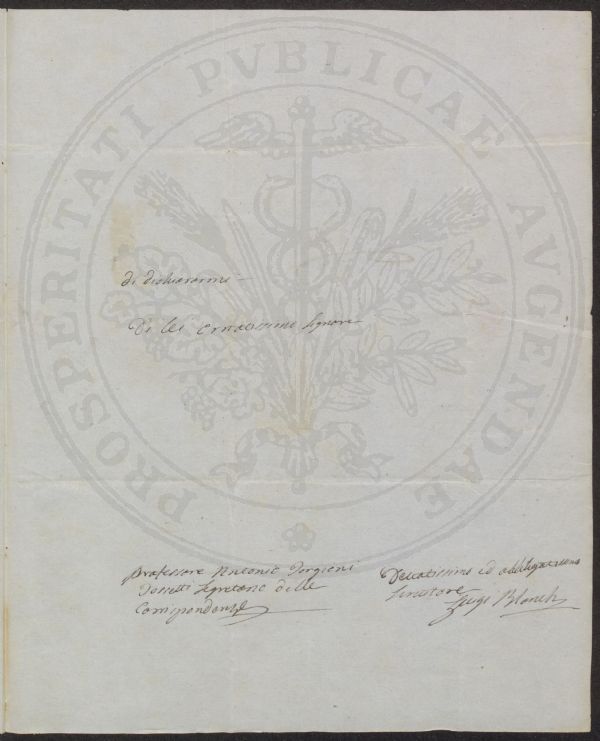 PROSPERITATI PVBLICAE AVGENDAE
di dichiararmi
Di Lei Ornatissimo Signore
Professore Antonio Targioni
Tozzetti Segretario delle
Corrispondenze
Devotissimo ed obbligatissimo
Servitore
Luigi Blanch